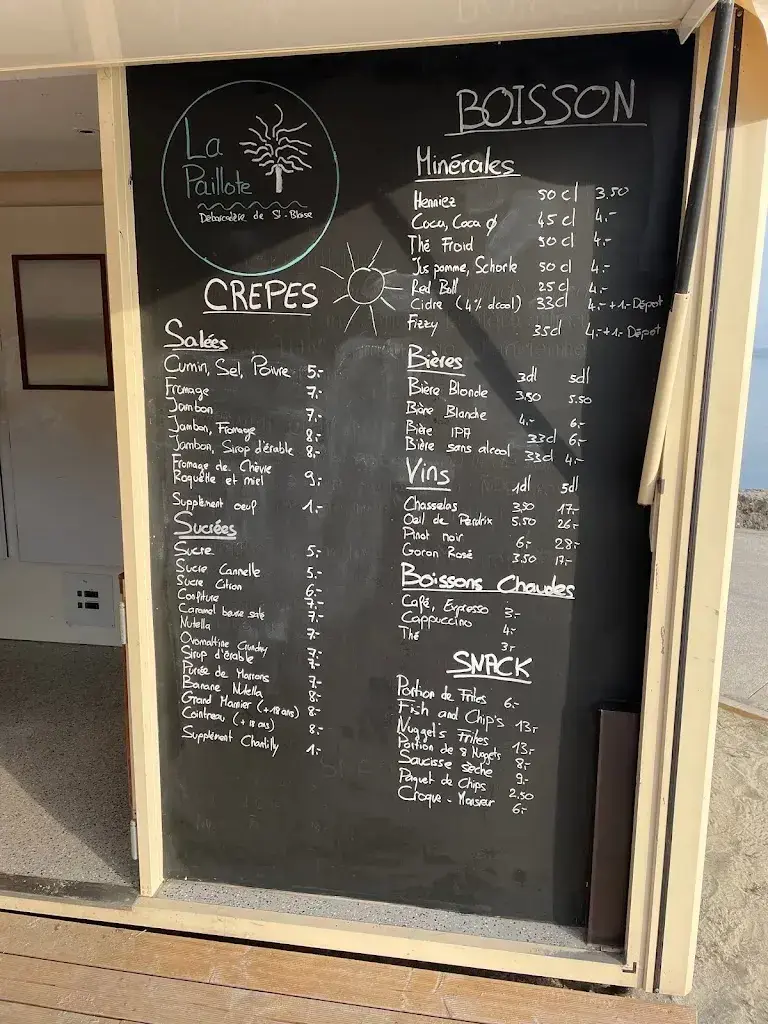 La
Paillote
Débarcadère de St-Blaise
CREPES
Salées
Cumin, Sel, Poivre 5.-
Fromage 7.-
Jambon 7.-
Jambon, Fromage 8.-
Jambon, Sirop d'érable 8.-
Fromage de Chèvre
Roquette et miel 9.-
Supplément oeuf 1.-
Sucrées
Sucre 5.-
Sucre Cannelle 5.-
Sucre Citron 6.-
Confiture 7.-
Caramel beurre salé 7.-
Nutella 7.-
Ovomaltine Crunchy 7.-
Sirop d'érable 7.-
Purée de Marrons 7.-
Banane Nutella 8.-
Grand Marnier (+18 ans) 8.-
Cointreau (+18 ans) 8.-
Supplément Chantilly 1.-
BOISSON
Minérales
Henniez 50 cl 3.50
Coca, Coca Ø 45 cl 4.-
Thé Froid 50 cl 4.-
Jus pomme, Schorle 50 cl 4.-
Red Bull 25 cl 4.-
Cidre (4% alcool) 33cl 4.-+1.- Dépot
Fizzy 35cl 4.-+1.- Dépot
Bières 3dl 5dl
Bière Blonde 3.50 5.50
Bière Blanche 4.- 6.-
Bière IPA 33cl 6.-
Bière sans alcool 33cl 4.-
Vins 1dl 5dl
Chasselas 3.50 17.-
Oeil de Perdrix 5.50 26.-
Pinot noir 6.- 28.-
Goron Rosé 3.50 17.-
Boissons Chaudes
Café, Expresso 3.-
Cappuccino 4.-
Thé 3.-
SNACK
Portion de Frites 6.-
Fish and Chip's 13.-
Nuggets Frites 13.-
Portion de 8 Nuggets 8.-
Saucisse sèche 9.-
Paquet de Chips 2.50
Croque-Monsieur 6.-